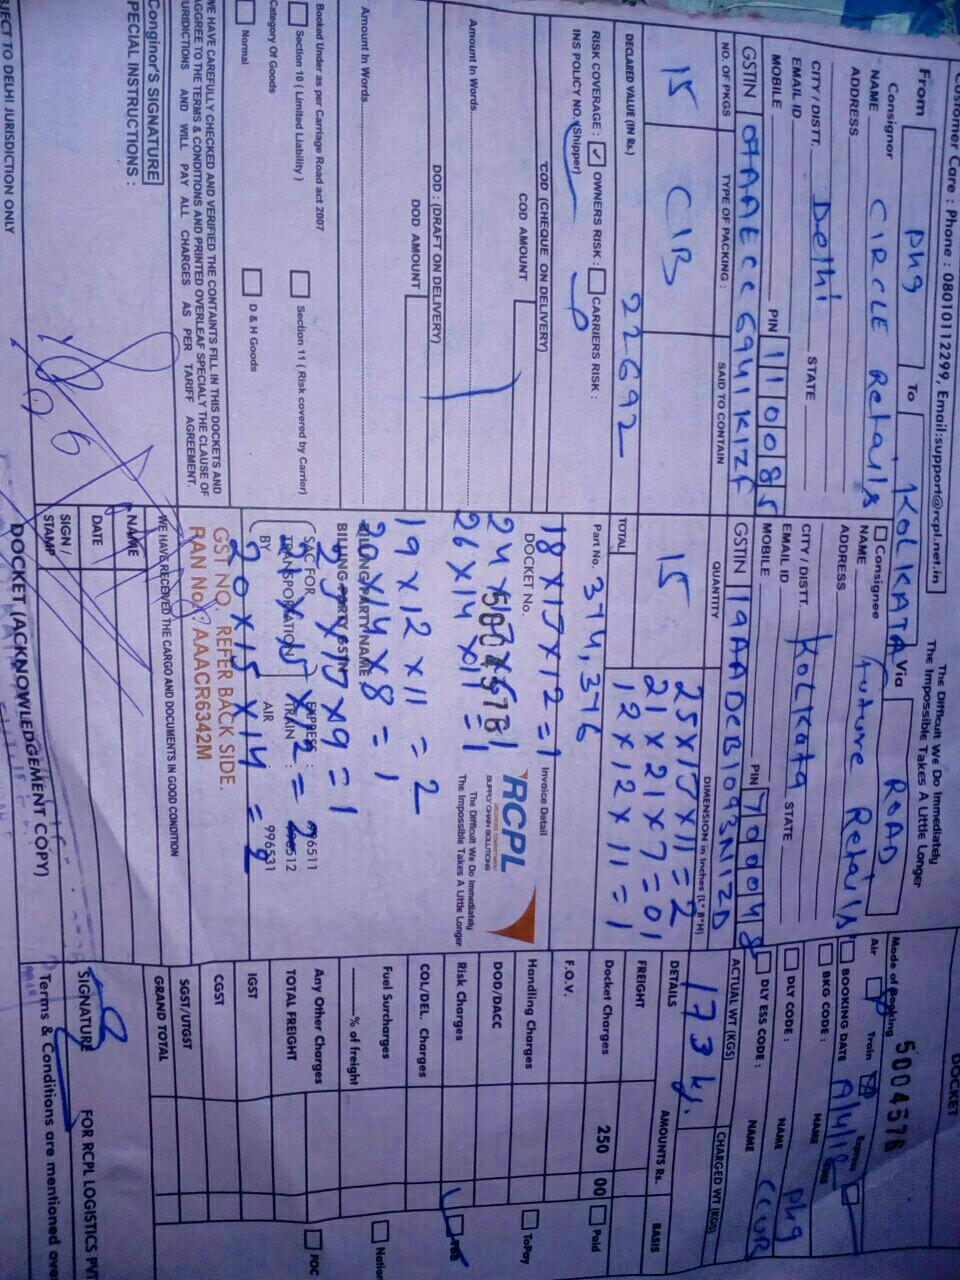 Customer Care : Phone : 08010112299, Email:support@rcpl.net.in
The Difficult We Do Immediately
The Impossible Takes A Little Longer
DOCKET
From
Phg
To
KOLKATA
Via
ROAD
Mode of Booking
5004576
Air
Train
Express
Consignor
NAME
CIRCLE Retails
ADDRESS
CITY / DISTT.
Delhi
STATE
EMAIL ID
MOBILE
PIN
110085
GSTIN 07AAECC6941K1ZF
Consignee
NAME
Future Retails
ADDRESS
CITY / DISTT.
Kolkata
STATE
EMAIL ID
MOBILE
PIN
700048
GSTIN 19AADCB1093N1ZD
BOOKING DATE
BKG CODE :
NAME
DLY CODE :
NAME
Phg
DLY ESS CODE :
NAME
CCUR
NO. OF PKGS
TYPE OF PACKING :
SAID TO CONTAIN
QUANTITY
DIMENSION in Inches (L* B*H)
ACTUAL WT (KGS)
CHARGED WT (KGS)
15
C/B
15
173 kg.
25 x 15 x 11 = 2
21 x 21 x 7 = 01
12 x 12 x 11 = 1
TOTAL
DECLARED VALUE (IN Rs.)
22692
Part No. 374, 376
Invoice Detail
18 x 15 x 12 = 1
RISK COVERAGE :
OWNERS RISK :
CARRIERS RISK :
INS POLICY NO. (Shipper)
COD (CHEQUE ON DELIVERY)
COD AMOUNT
Amount In Words
DOD : (DRAFT ON DELIVERY)
DOD AMOUNT
Amount In Words
DOCKET No.
50045761
RCPL
SUPPLY CHAIN SOLUTIONS
The Difficult We Do Immediately
The Impossible Takes A Little Longer
26 x 14 x 11 = 1
19 x 12 x 11 = 2
BILLING PARTY NAME
20 x 14 x 8 = 1
BILLING PARTY GSTN
SAC FOR
TRANSPORATION
BY
EXPRESS :
TRAIN :
AIR :
996511
996531
20 x 15 x 14 = 2
GST NO. REFER BACK SIDE.
PAN No.: AAACR6342M
Booked Under as per Carriage Road act 2007
Section 10 ( Limited Liability )
Section 11 ( Risk covered by Carrier)
Category Of Goods
Normal
D & H Goods
WE HAVE CAREFULLY CHECKED AND VERIFIED THE CONTAINTS FILL IN THIS DOCKETS AND
AGGREE TO THE TERMS & CONDITIONS AND PRINTED OVERLEAF SPECIALY THE CLAUSE OF
JURIDICTIONS AND WILL PAY ALL CHARGES AS PER TARIFF AGREEMENT.
Conginor'S SIGNATURE
SPECIAL INSTRUCTIONS :
WE HAVE RECEIVED THE CARGO AND DOCUMENTS IN GOOD CONDITION
NAME
DATE
SIGN /
STAMP
DETAILS
AMOUNTS Rs.
BASIS
FREIGHT
Docket Charges
250 00
Paid
F.O.V.
Handling Charges
ToPay
DOD/DACC
Risk Charges
TBB
COL/DEL. Charges
Fuel Surcharges
% of freight
Any Other Charges
FOC
TOTAL FREIGHT
IGST
CGST
SGST/UTGST
GRAND TOTAL
SIGNATURE
FOR RCPL LOGISTICS PVT
SUBJECT TO DELHI JURISDICTION ONLY
DOCKET (ACKNOWLEDGEMENT COPY)
Terms & Conditions are mentioned over